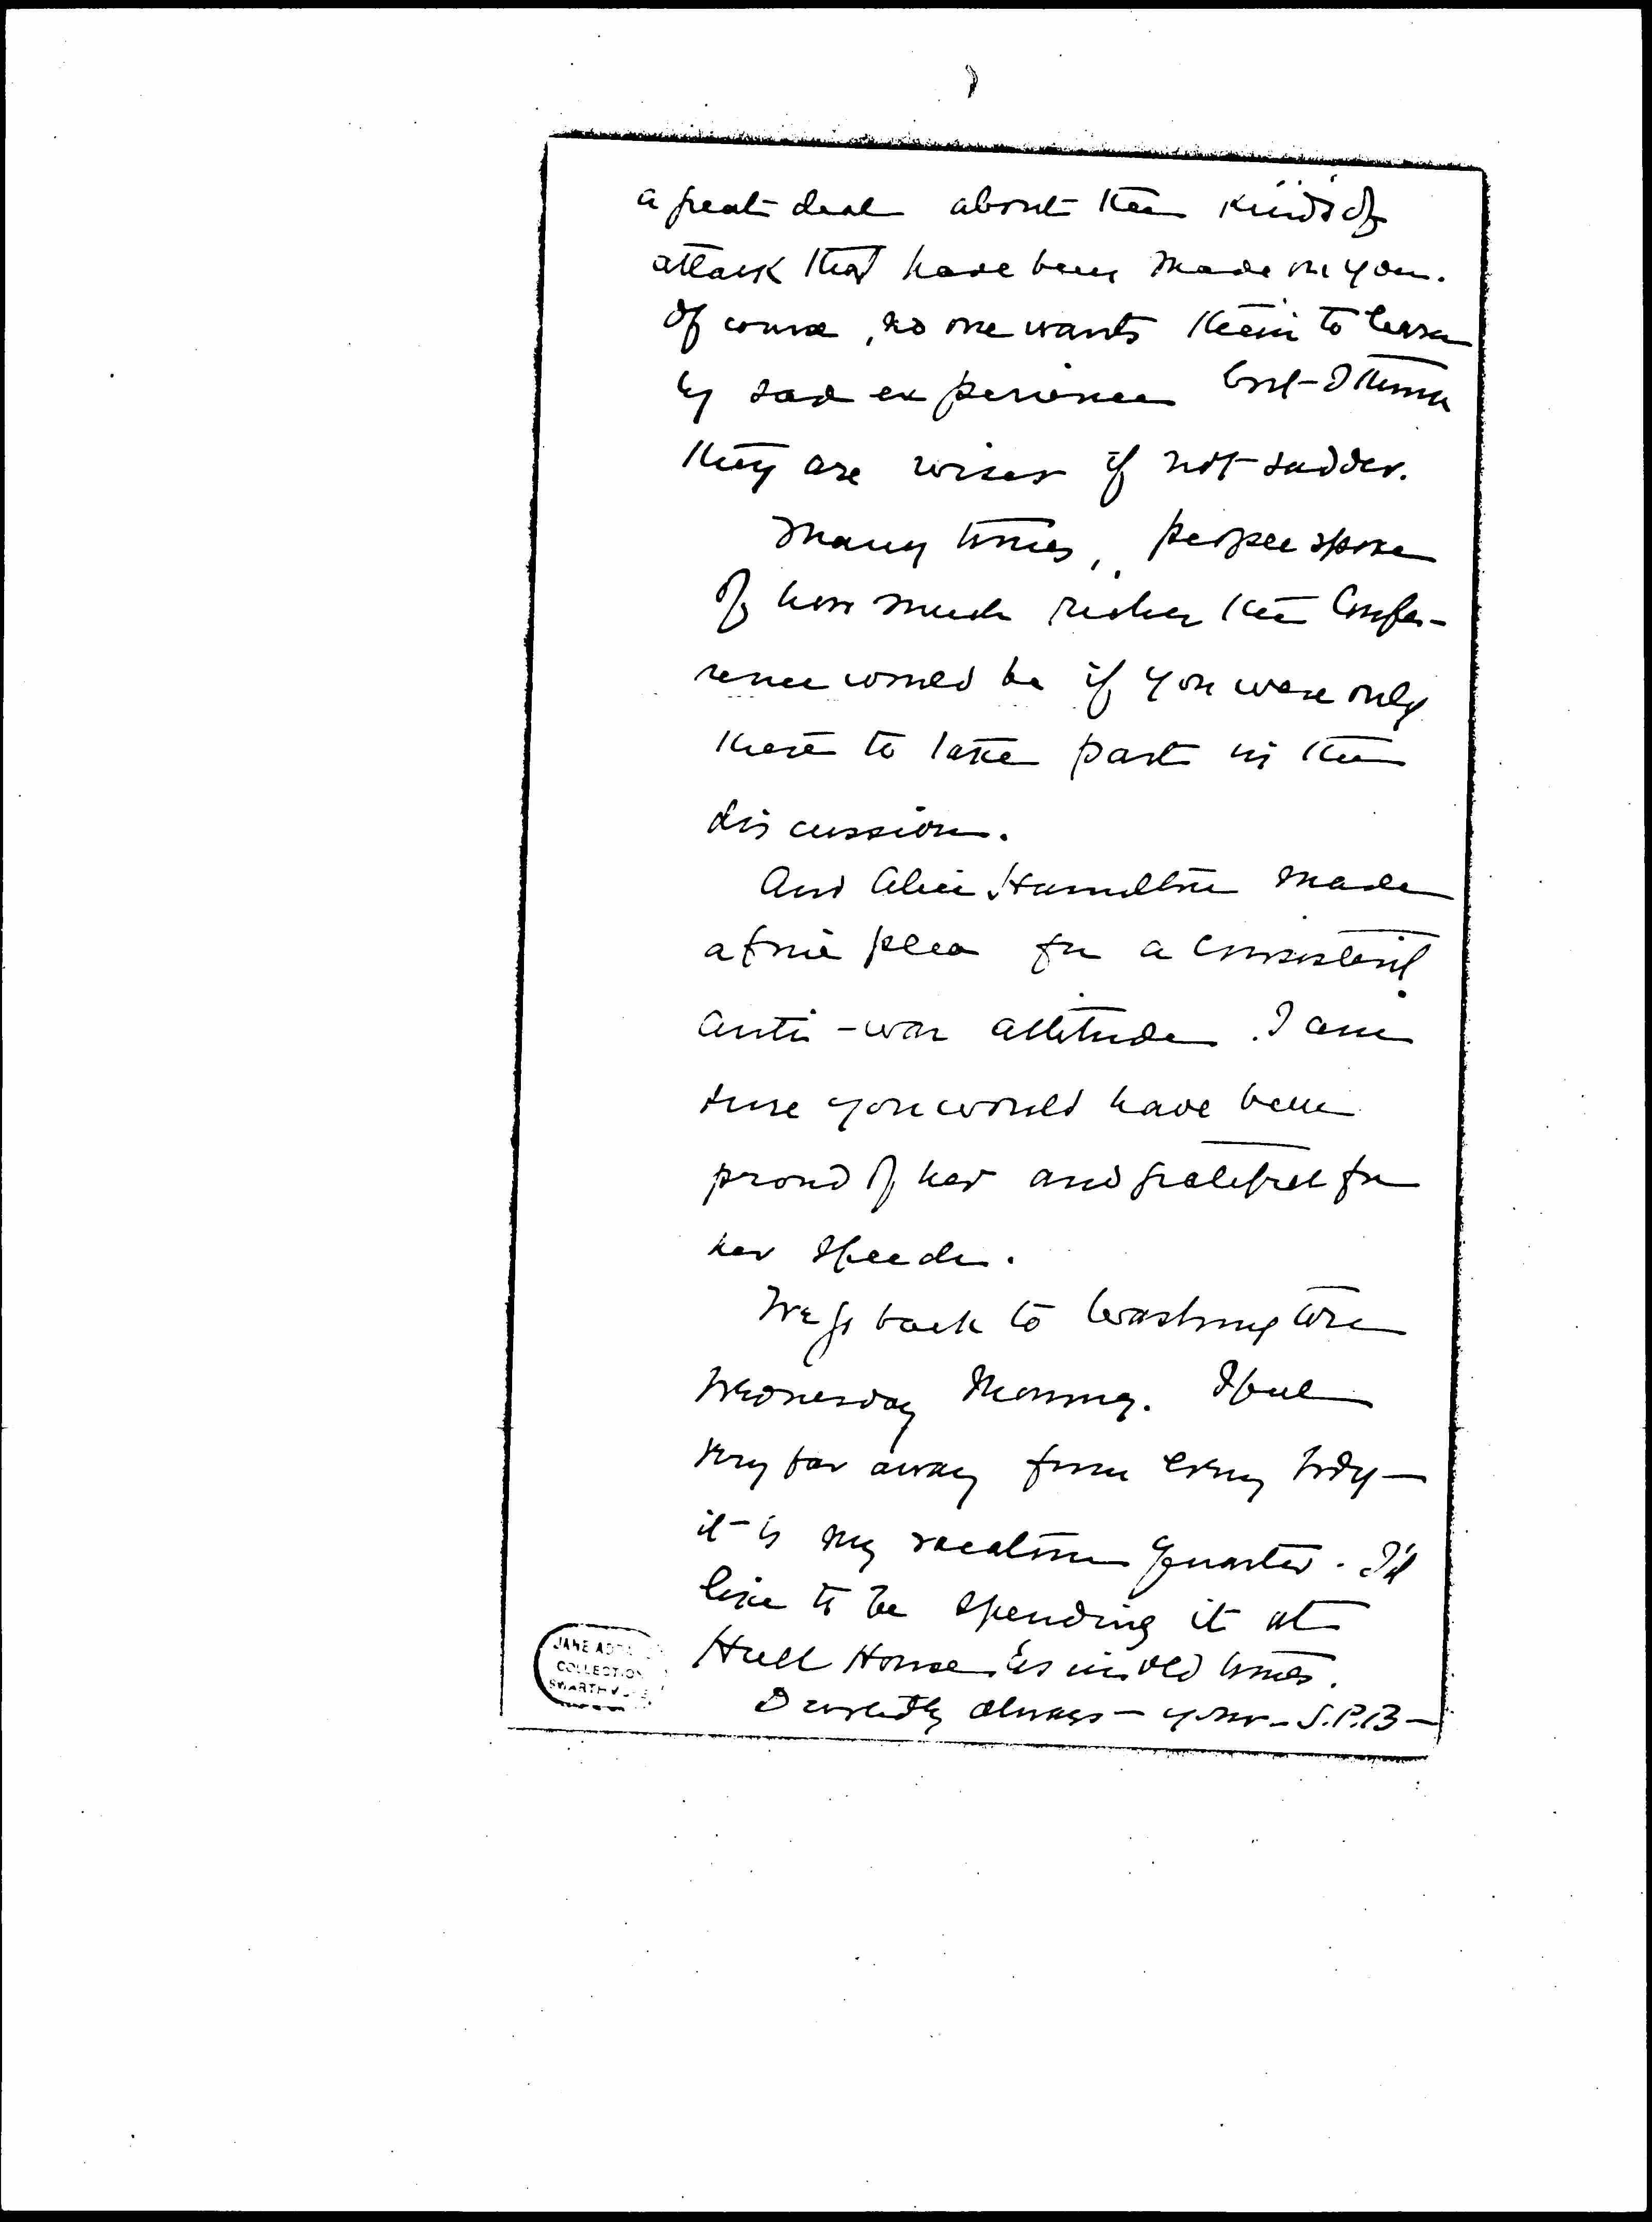 a great deal about the kinds of
attack that have been made on you.
Of course, no one wants them to learn
by sad experience but I think
they are wiser if not sadder.
Many times, people spoke
of how much richer the Confer-
ence would be if you were only
there to take part in the
discussion.
And Alice Hamilton made
a fine plea for a consistent
anti-war attitude. I am
sure you would have been
proud of her and grateful for
her speech.
We go back to Washington
Wednesday Morning. I feel
very far away from every body—
it is my vacation Quarter. I'd
like to be spending it at
Hull House as in old times.
Devotedly always — your — S.P.B —
JANE ADD
COLLECTION
SWARTHMORE